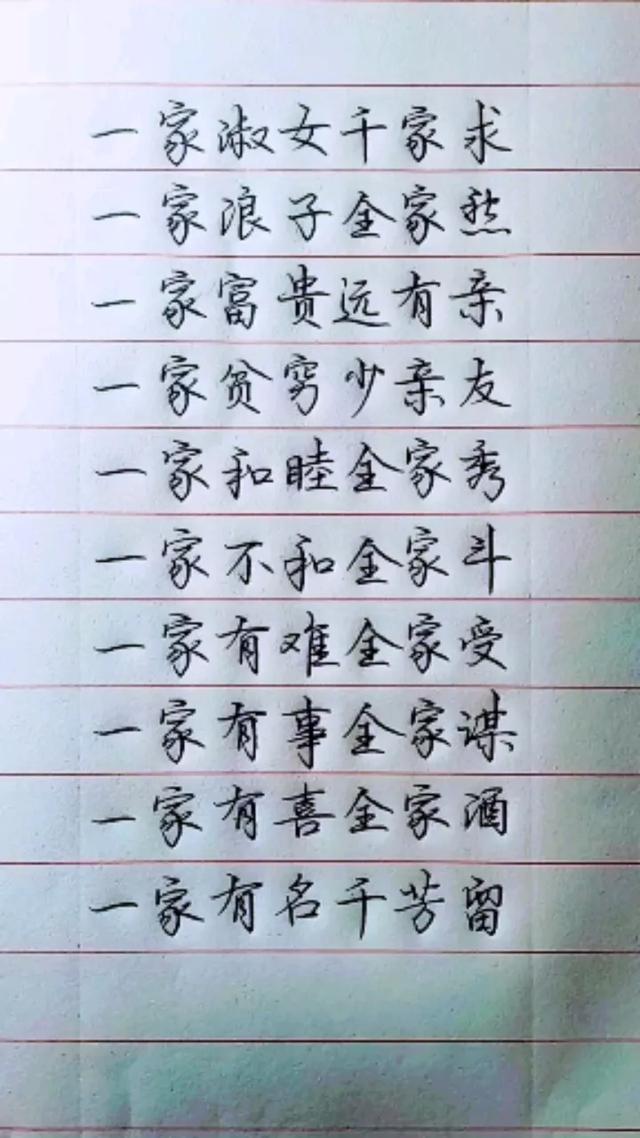 一家淑女千家求
一家浪子全家愁
一家富贵远有亲
一家贫穷少亲友
一家和睦全家秀
一家不和全家斗
一家有难全家受
一家有事全家谋
一家有喜全家酒
一家有名千芳留